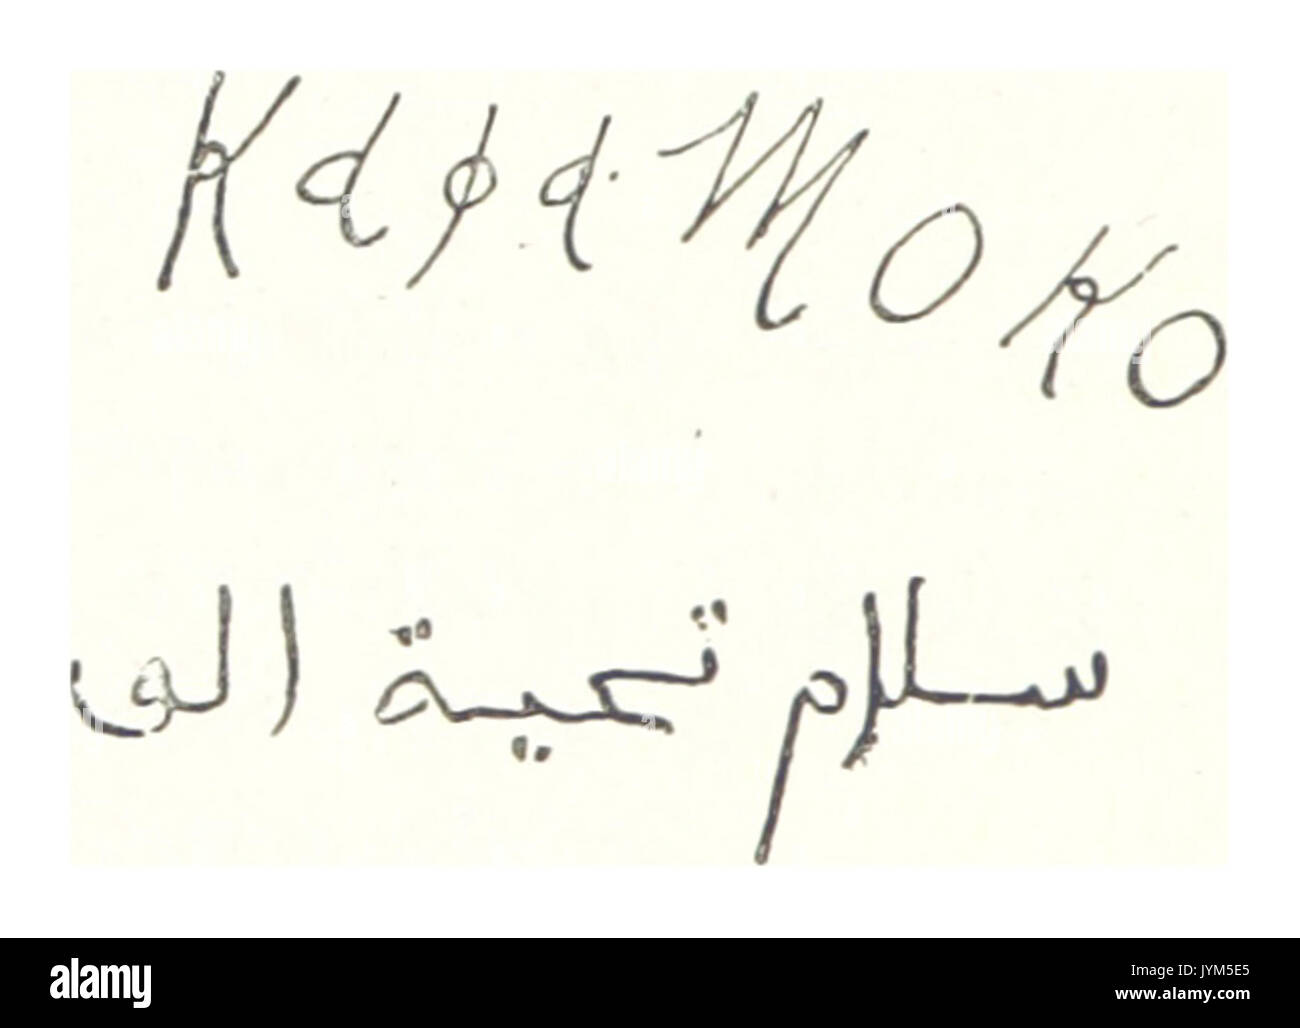 Kapa Moko
سلام تحية الى
alamy
Image ID: JYM5E5
www.alamy.com